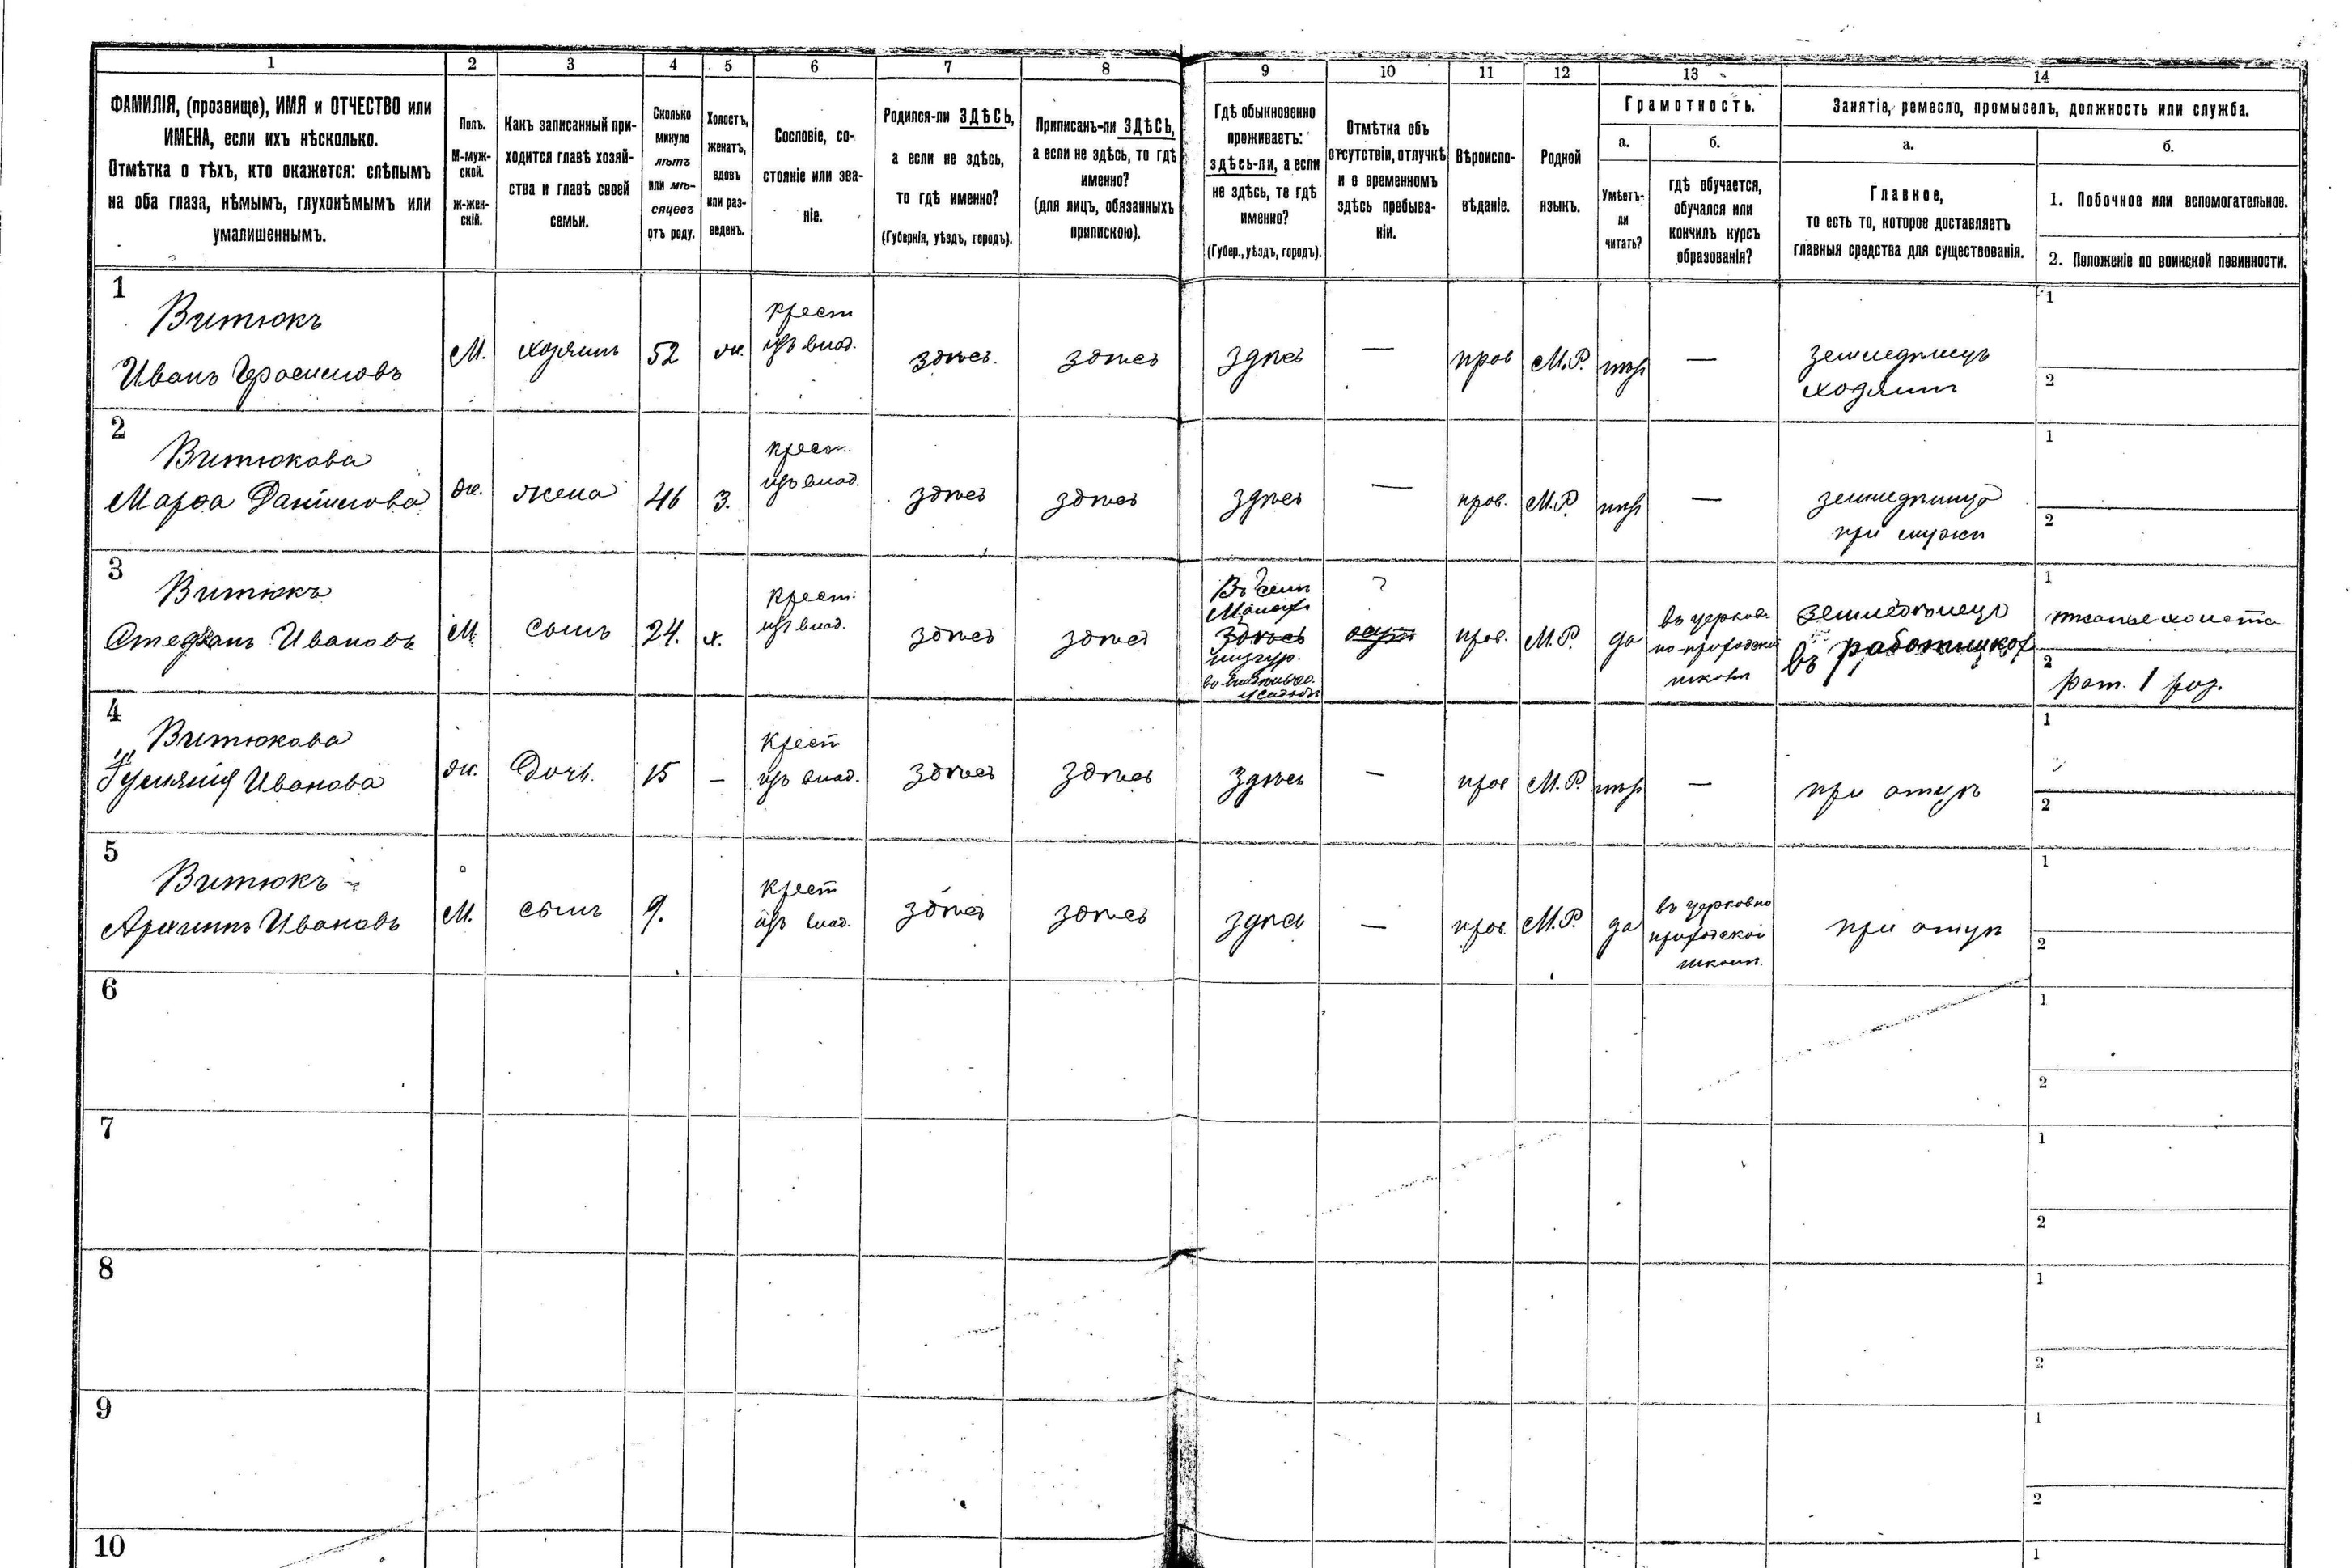 1 2 3 4 5 6 7 8 9 10 11 12 13 14
ФАМИЛІЯ, (прозвище), ИМЯ и ОТЧЕСТВО или
ИМЕНА, если ихъ нѣсколько.
Отмѣтка о тѣхъ, кто окажется: слѣпымъ
на оба глаза, нѣмымъ, глухонѣмымъ или
умалишеннымъ.
Полъ.
М-муж-
ской.
ж-жен-
скій.
Какъ записанный при-
ходится главѣ хозяй-
ства и главѣ своей
семьи.
Сколько
минуло
лѣтъ
или мѣ-
сяцевъ
отъ роду.
Холостъ,
женатъ,
вдовъ
или раз-
веденъ.
Сословіе, со-
стояніе или зва-
ніе.
Родился-ли ЗДѢСЬ,
а если не здѣсь,
то гдѣ именно?
(Губернія, уѣздъ, городъ).
Приписанъ-ли ЗДѢСЬ,
а если не здѣсь, то гдѣ
именно?
(для лицъ, обязанныхъ
припискою).
Гдѣ обыкновенно
проживаетъ:
здѣсь-ли, а если
не здѣсь, то гдѣ
именно?
(Губер., уѣздъ, городъ).
Отмѣтка объ
отсутствіи, отлучкѣ
и о временномъ
здѣсь пребыва-
ніи.
Вѣроиспо-
вѣданіе.
Родной
языкъ.
Грамотность.
а.
Умѣетъ-
ли
читать?
б.
гдѣ обучается,
обучался или
кончилъ курсъ
образованія?
Занятіе, ремесло, промыселъ, должность или служба.
а.
Главное,
то есть то, которое доставляетъ
главныя средства для существованія.
б.
1. Побочное или вспомогательное.
2. Положеніе по воинской повинности.
1
Витюкъ
Иванъ Герасимовъ
М.
хозяинъ
52
ж.
крест
изъ влад.
здѣсь
здѣсь
здѣсь
—
прав
М.Р.
нѣт
—
земледѣлецъ
хозяинъ
1
2
2
Витюкова
Марѳа Данилова
ж.
жена
46
З.
крест.
изъ влад.
здѣсь
здѣсь
здѣсь
—
прав.
М.Р.
нѣт
—
земледѣлица
при мужѣ
1
2
3
Витюкъ
Стефанъ Ивановъ
М.
сынъ
24.
х.
крест.
изъ влад.
здѣсь
здѣсь
Въ селѣ
здѣсь
?
прав.
М.Р.
да
въ церков-
но-приходской
школѣ
земледѣлецъ
въ работникахъ
1
тканье холста
2
рат. 1 раз.
4
Витюкова
Иванова
ж.
дочь.
15
—
Крест
изъ влад.
здѣсь
здѣсь
здѣсь
—
прав
М.Р.
нѣт
—
при отцѣ
1
2
5
Витюкъ
Ивановъ
М.
сынъ
9.
крест
изъ влад.
здѣсь
здѣсь
здѣсь
—
прав.
М.Р.
да
въ церковно
приходской
школѣ.
при отцѣ
1
2
6
1
2
7
1
2
8
1
2
9
1
2
10
1